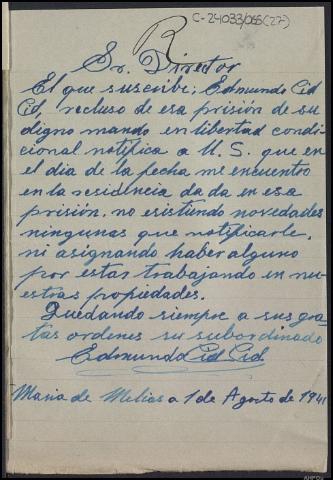 C-24033/066(27)
R
Sr. Director
El que suscribe; Edmundo Cid
Cid, recluso de esa prisión de su
digno mando en libertad condi
cional notifica a U. S. que en
el dia de la fecha me encuentro
en la residencia dada en esa
prisión. no esistiendo novedades
ningunas que notificarle,
ni asignando haber alguno
por estar trabajando en nu-
estras propiedades.
Quedando siempre a sus gra
tas ordenes su subordinado
Edmundo Cid Cid
Maria de Melias a 1 de Agosto de 1941